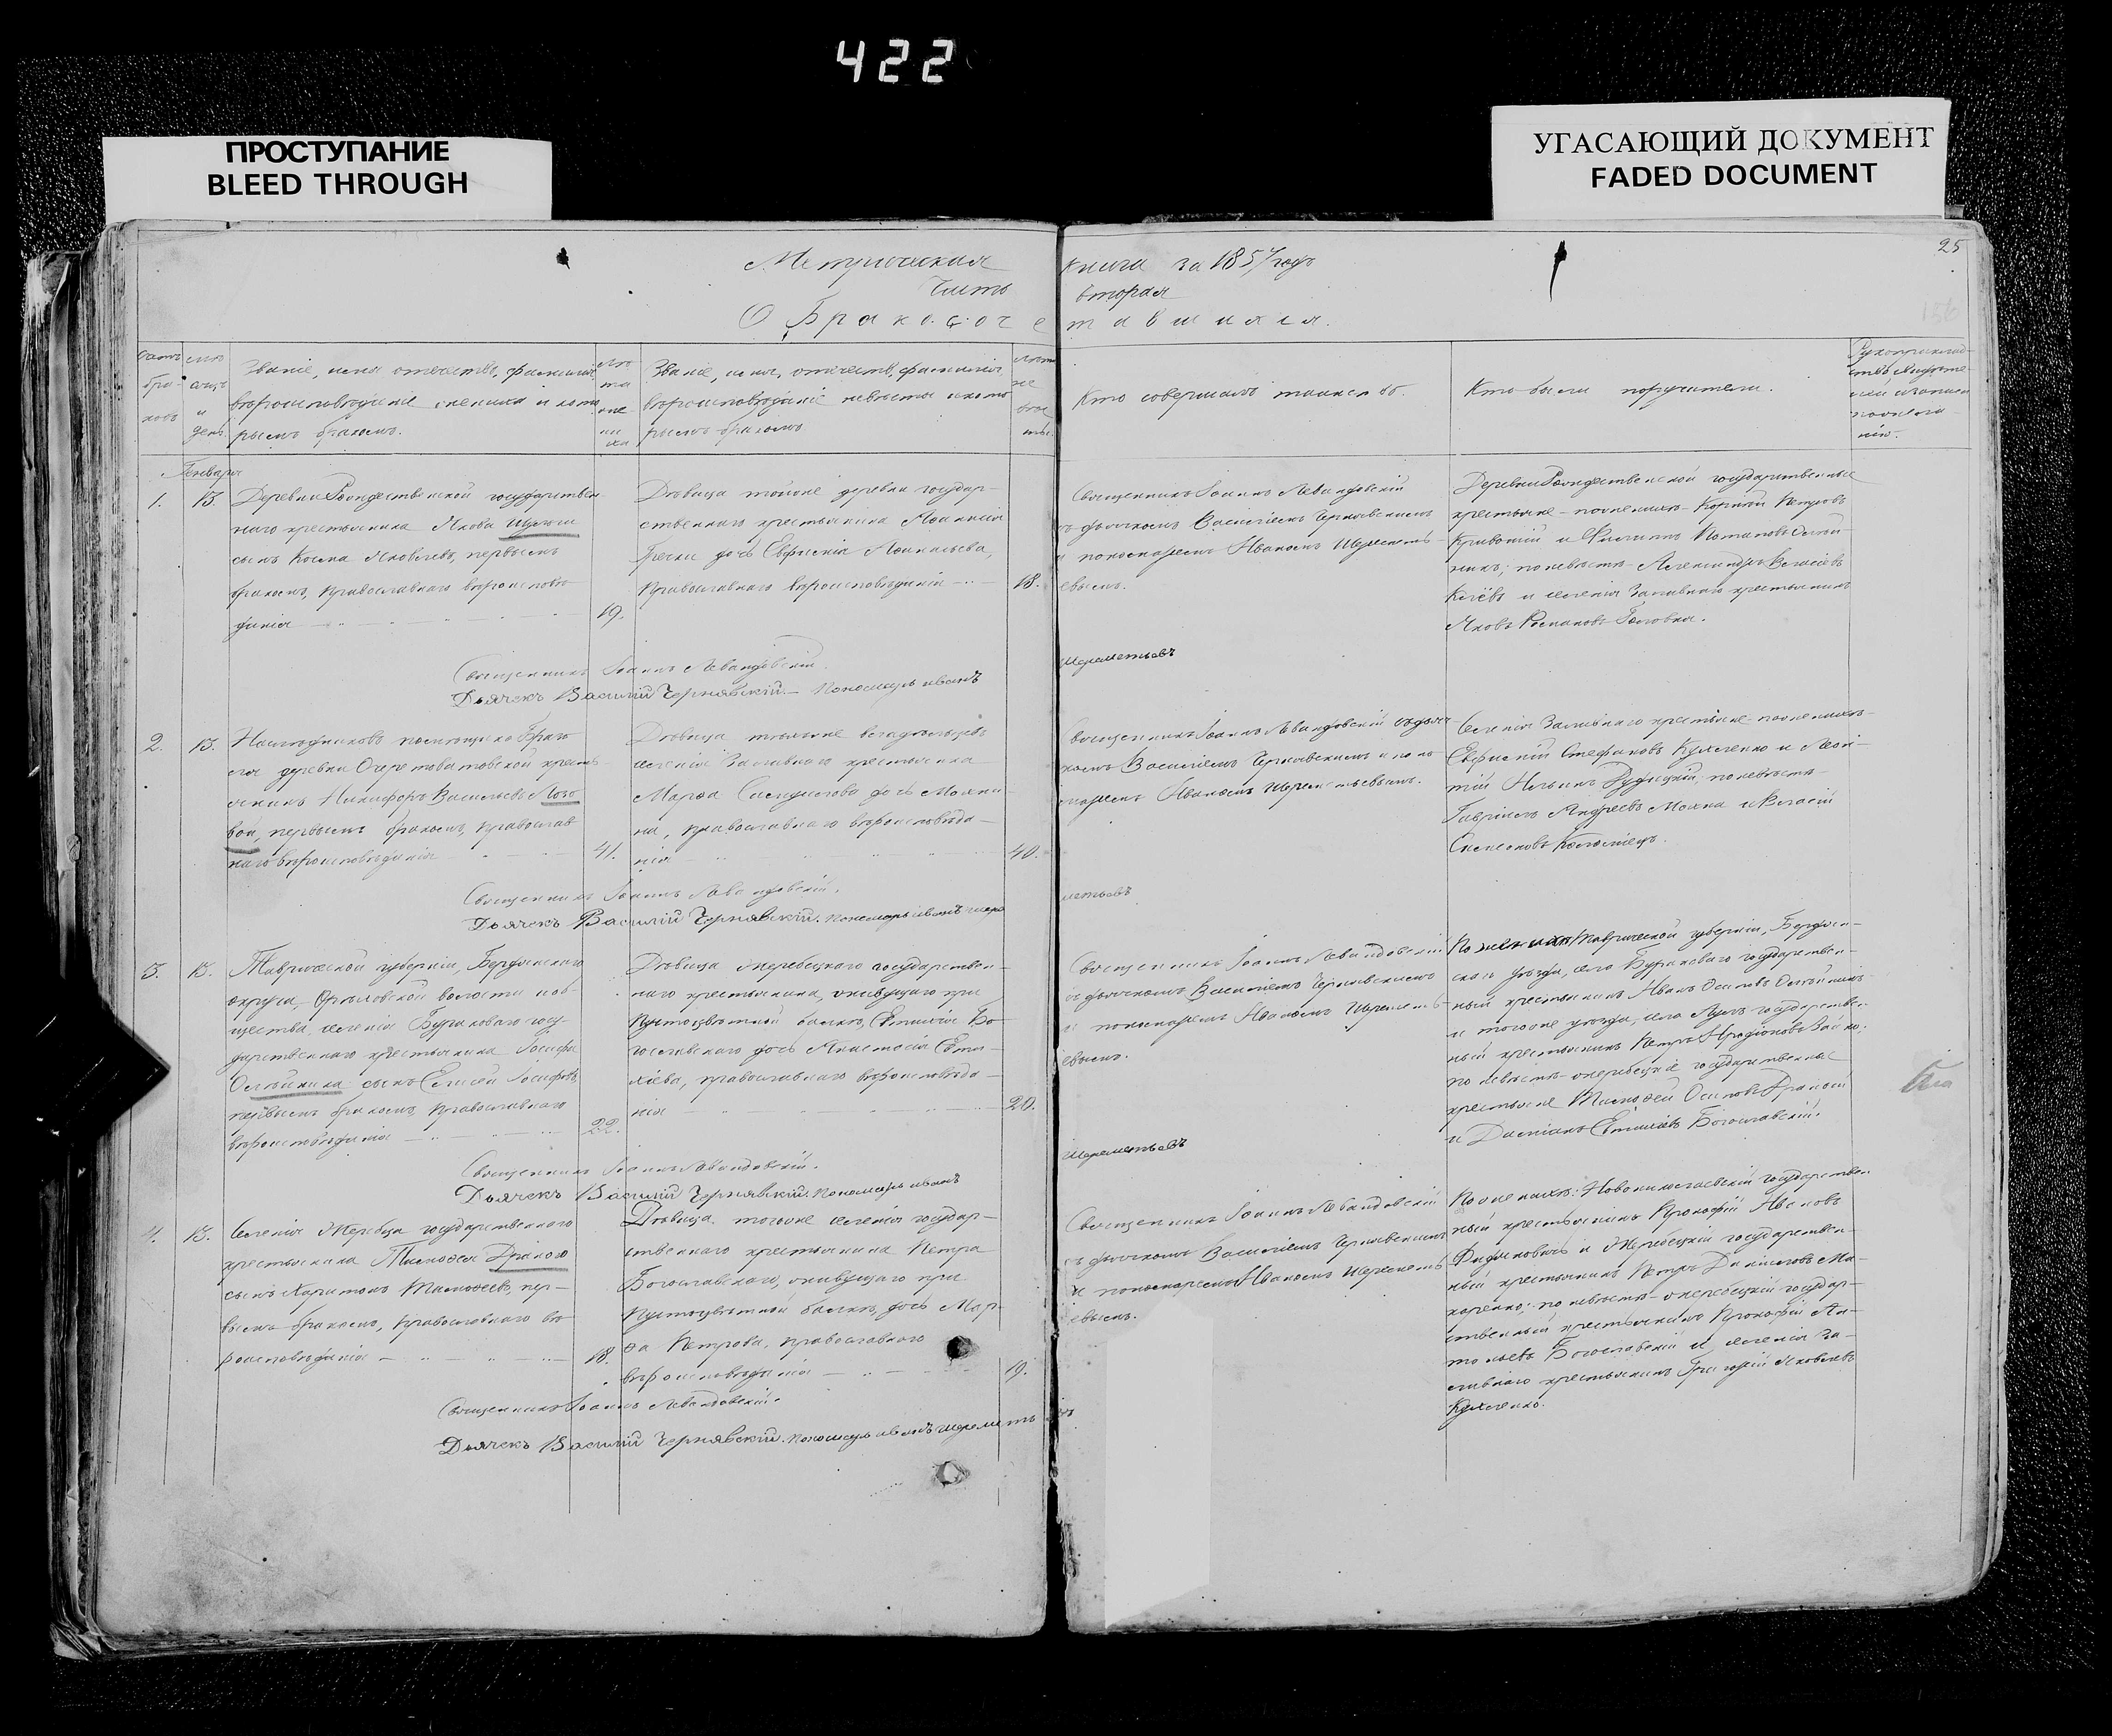 422
ПРОСТУПАНИЕ
BLEED THROUGH
УГАСАЮЩИЙ ДОКУМЕНТ
FADED DOCUMENT
25
Метрическая книга за 1857 годъ
Часть вторая
О Бракосочетавшихся.
Званіе, имя, отчество, фамилія
вѣроисповѣданіе жениха и кото
рымъ бракомъ.
Званіе, имя, отчество, фамилія
вѣроисповѣданіе невѣсты и кото
рымъ бракомъ
Кто совершалъ таинство.
Кто были поручители.
Января
1. 13.
Деревни Рождественской государствен
наго крестьянина Якова
сынъ Косма Яковлевъ, первымъ
бракомъ, православнаго вѣроисповѣ
данія
19.
Дѣвица тойже деревни государ-
ственнаго крестьянина Аѳанасія
дочь Евфимія Аѳанасьева,
православнаго вѣроисповѣданія
18.
Священникъ Іоаннъ Левандовскій
съ дьячкомъ Василіемъ Чернявскимъ
и пономаремъ Иваномъ Шереметь-
евымъ.
Деревни Рождественской государственные
крестьяне по женихѣ Корнилій Петровъ
и Филиппъ Потаповъ Олѣй
никъ; по невѣстѣ Александръ Власіевъ
и селенія Заливнаго крестьянинъ
Яковъ Романовъ Головка.
Священникъ Іоаннъ Левандовскій.
Дьячекъ Василій Чернявскій. Пономарь иванъ Шереметьевъ
2. 13.
Наслѣдниковъ помѣщика
деревни Очеретоватовской кресть
янинъ Никифоръ Васильевъ Лозо
вой, первымъ бракомъ, православ
наго вѣроисповѣданія
41.
Дѣвица
селенія Заливнаго крестьянка
Марѳа дочь
на, православнаго вѣроисповѣда-
нія
40.
Священникъ Іоаннъ Левандовскій съ дьяч
комъ Василіемъ Чернявскимъ и поно
маремъ Иваномъ Шереметьевымъ.
Селенія Заливнаго крестьяне по женихѣ
Евфимій Стефановъ и Леон-
тій Ильинъ Рудицкій; по невѣстѣ
Гавріилъ Андреевъ и Власій
Симеоновъ Коломіецъ.
Священникъ Іоаннъ Левандовскій.
Дьячекъ Василій Чернявскій. Пономарь иванъ Шереметьевъ
3. 13.
Таврической губерніи, Бердянскаго
округа, Орѣховской волости и об-
щества, селенія Бураковаго госу-
дарственнаго крестьянина Іосифа
Олѣйника сынъ Елисей Іосифовъ,
первымъ бракомъ, православнаго
вѣроисповѣданія
22.
Дѣвица жеребецкаго государствен-
наго крестьянина, живущаго при
Пустоцвѣтной балкѣ, Евтихія Бо-
гославскаго дочь Анастасія Евти-
хіева, православнаго вѣроисповѣда-
нія
20.
Священникъ Іоаннъ Левандовскій
съ дьячкомъ Василіемъ Чернявскимъ
и пономаремъ Иваномъ Шереметь-
евымъ.
По женихѣ Таврической губерніи, Бердян-
скаго уѣзда, села Бураковаго государствен-
ный крестьянинъ Иванъ Осиповъ Олѣйникъ
и тогоже уѣзда, села государствен-
ный крестьянинъ Петръ Иродіоновъ
по невѣстѣ жеребецкіе государственные
крестьяне Тимоѳей Осиповъ Драный
и Даміанъ Евтихіевъ Богославскій.
Священникъ Іоаннъ Левандовскій.
Дьячекъ Василій Чернявскій. Пономарь иванъ Шереметьевъ
4. 13.
Селенія Жеребца государственнаго
крестьянина Тимоѳея Дранаго
сынъ Харитонъ Тимоѳеевъ, пер-
вымъ бракомъ, православнаго вѣ-
роисповѣданія
18.
Дѣвица тогоже селенія государ-
ственнаго крестьянина Петра
Богославскаго, живущаго при
Пустоцвѣтной балкѣ, дочь Мар-
ѳа Петрова, православнаго
вѣроисповѣданія
19.
Священникъ Іоаннъ Левандовскій
съ дьячкомъ Василіемъ Чернявскимъ
и пономаремъ Иваномъ Шереметь
евымъ.
По женихѣ: Новониколаевскій государствен
ный крестьянинъ Прокофій Ивановъ
и Жеребецкій государствен-
ный крестьянинъ Петръ Даниловъ Ма-
каренко; по невѣстѣ жеребецкій государ-
ственный крестьянинъ Прокофій Ана-
тольевъ Богославскій и селенія За-
ливнаго крестьянинъ Григорій Яковлевъ
Священникъ Іоаннъ Левандовскій.
Дьячекъ Василій Чернявскій. Пономарь иванъ Шереметьевъ